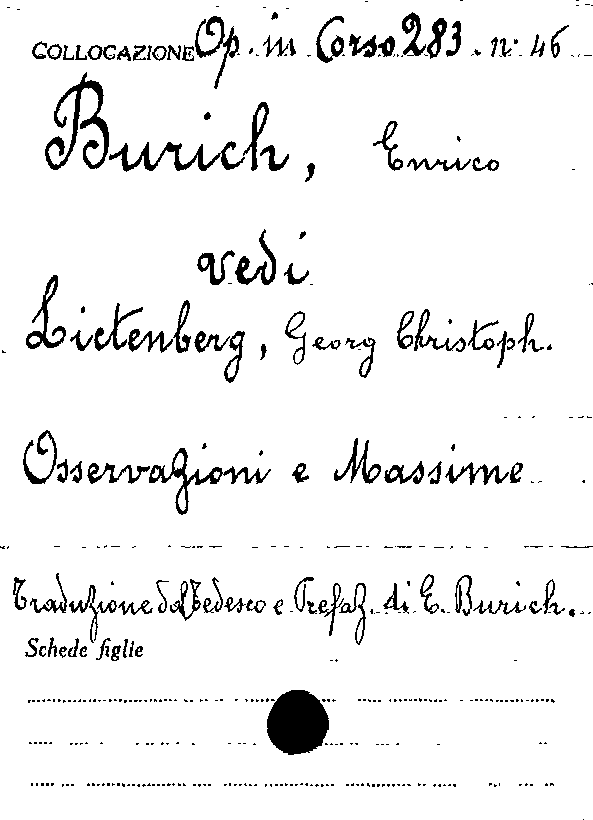 COLLOCAZIONE Op. in Corso 283. n. 46
Burich, Enrico
vedi
Lictenberg, Georg Christoph.
Osservazioni e Massime
Traduzione dal Tedesco e Prefaz. di E. Burich.
Schede figlie